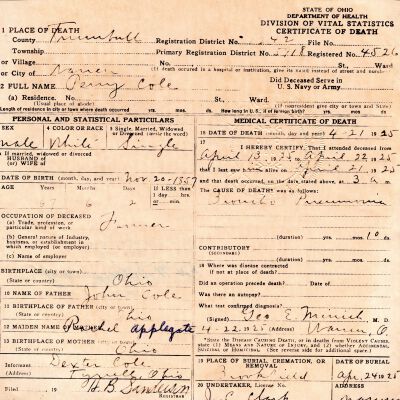 STATE OF OHIO
DEPARTMENT OF HEALTH
DIVISION OF VITAL STATISTICS
CERTIFICATE OF DEATH
1 PLACE OF DEATH
County Trumbull Registration District No. File No.
Township Primary Registration District No. Registered No. 4526
or Village No. St., Ward
or City of Warren (If death occurred in a hospital or institution, give its name instead of street and number)
2 FULL NAME Perry Cole Did Deceased Serve in U. S. Navy or Army
(a) Residence. No. St., Ward.
(Usual place of abode) (If nonresident give city or town and State)
Length of residence in city or town where death occurred yrs. mos. ds. How long in U. S., if of foreign birth? yrs. mos. ds.
PERSONAL AND STATISTICAL PARTICULARS
SEX 4 COLOR OR RACE 5 Single, Married, Widowed or Divorced (write the word)
male White Single
If married, widowed or divorced
HUSBAND of
(or) WIFE of
DATE OF BIRTH (month, day, and year) Nov. 20-1857
AGE Years Months Days If LESS than 1 day, hrs. or min.
67
OCCUPATION OF DECEASED
(a) Trade, profession, or particular kind of work Farmer
(b) General nature of Industry, business, or establishment in which employed (or employer)
(c) Name of employer
BIRTHPLACE (city or town)
(State or country) Ohio
10 NAME OF FATHER John Cole
11 BIRTHPLACE OF FATHER (city or town)
(State or country) Ohio
12 MAIDEN NAME OF Rachel Applegate
13 BIRTHPLACE OF MOTHER (city or town)
(State or country) Ohio
Informant Dexter Cole
(Address) Ohio
Filed 19 REGISTRAR
MEDICAL CERTIFICATE OF DEATH
16 DATE OF DEATH (month, day and year) 4-21 1925
17 I HEREBY CERTIFY, That I attended deceased from
April 13, 1925 to April 22, 1925
that I last saw alive on April 21, 1925
and that death occurred, on the date stated above, at 3 a. m.
The CAUSE OF DEATH was as follows:
Broncho Pneumonia
(duration) yrs. mos. 10 ds.
CONTRIBUTORY
(SECONDARY)
(duration) yrs. mos. ds.
18 Where was disease contracted
if not at place of death?
Did an operation precede death? Date of
Was there an autopsy?
What test confirmed diagnosis?
(Signed) Geo E. Minnich M. D.
4-22, 1925 (Address) Warren O.
State the Disease Causing Death, or in deaths from Violent Causes, state (1) Means and Nature of Injury, and (2) whether Accidental, Suicidal, or Homicidal. (See reverse side for additional space.)
19 PLACE OF BURIAL, CREMATION, OR REMOVAL DATE OF BURIAL
Apr. 24 1925
20 UNDERTAKER, License No. ADDRESS